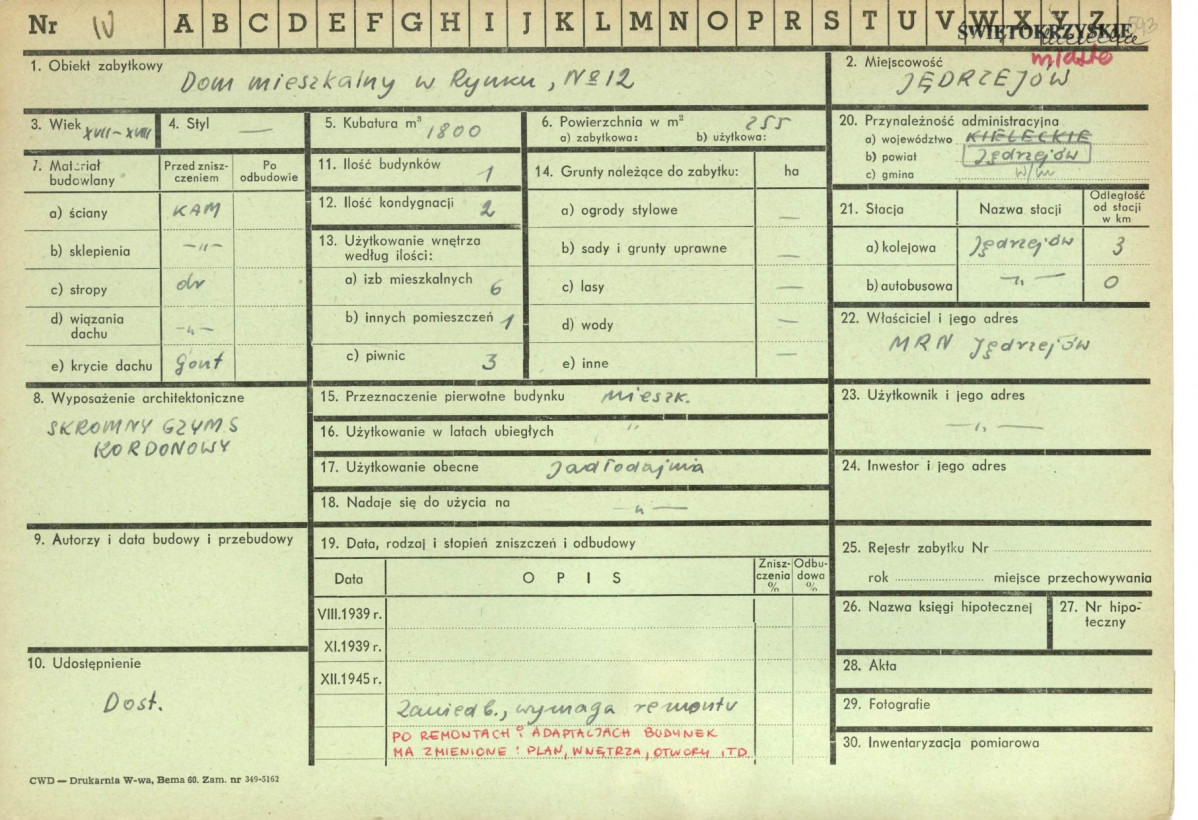 Nr IV A B C D E F G H I J K L M N O P R S T U V W X Y Z
ŚWIĘTOKRZYSKIE
1. Obiekt zabytkowy
Dom mieszkalny w Rynku, № 12
2. Miejscowość miasto
JĘDRZEJÓW
3. Wiek XVII-XVIII
4. Styl —
5. Kubatura m³ 1800
6. Powierzchnia w m² 255
a) zabytkowa: b) użytkowa:
20. Przynależność administracyjna
a) województwo KIELECKIE
b) powiat Jędrzejów
c) gmina
7. Materiał budowlany
Przed zniszczeniem
Po odbudowie
a) ściany KAM
b) sklepienia —„—
c) stropy dr
d) wiązania dachu —„—
e) krycie dachu gont
11. Ilość budynków 1
12. Ilość kondygnacji 2
13. Użytkowanie wnętrza
według ilości:
a) izb mieszkalnych 6
b) innych pomieszczeń 1
c) piwnic 3
14. Grunty należące do zabytku: ha
a) ogrody stylowe —
b) sady i grunty uprawne —
c) lasy —
d) wody —
e) inne —
21. Stacja
Nazwa stacji
Odległość od stacji w km
a) kolejowa Jędrzejów 3
b) autobusowa —„— 0
22. Właściciel i jego adres
MRN Jędrzejów
8. Wyposażenie architektoniczne
SKROMNY GZYMS
KORDONOWY
15. Przeznaczenie pierwotne budynku mieszk.
16. Użytkowanie w latach ubiegłych "
17. Użytkowanie obecne Jadłodajnia
18. Nadaje się do użycia na —„—
23. Użytkownik i jego adres
—„—
24. Inwestor i jego adres
9. Autorzy i data budowy i przebudowy
19. Data, rodzaj i stopień zniszczeń i odbudowy
Data
OPIS
Zniszczenia %
Odbudowa %
VIII.1939 r.
XI.1939 r.
XII.1945 r.
Zaniedb., wymaga remontu
PO REMONTACH I ADAPTACJACH BUDYNEK
MA ZMIENIONE: PLAN, WNĘTRZA, OTWORY ITD
25. Rejestr zabytku Nr
rok miejsce przechowywania
26. Nazwa księgi hipotecznej
27. Nr hipoteczny
10. Udostępnienie
Dost.
28. Akta
29. Fotografie
30. Inwentaryzacja pomiarowa
CWD — Drukarnia W-wa, Bema 60. Zam. nr 349-5162